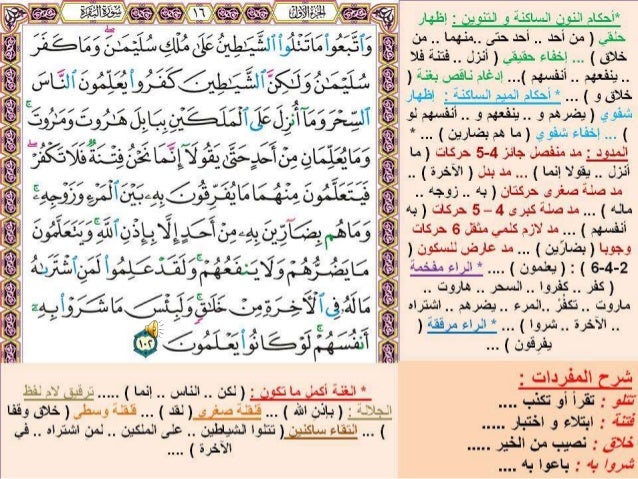 سُورَةُ البَقَرَةِ
١٦
الجُزْءُ الأَوَّلُ
وَاتَّبَعُوا مَا تَتْلُوا الشَّيَاطِينُ عَلَىٰ مُلْكِ سُلَيْمَٰنَ وَمَا كَفَرَ
سُلَيْمَٰنُ وَلَٰكِنَّ الشَّيَٰطِينَ كَفَرُوا يُعَلِّمُونَ النَّاسَ
السِّحْرَ وَمَا أُنزِلَ عَلَى الْمَلَكَيْنِ بِبَابِلَ هَٰرُوتَ وَمَٰرُوتَ
وَمَا يُعَلِّمَانِ مِنْ أَحَدٍ حَتَّىٰ يَقُولَا إِنَّمَا نَحْنُ فِتْنَةٌ فَلَا تَكْفُرْ
فَيَتَعَلَّمُونَ مِنْهُمَا مَا يُفَرِّقُونَ بِهِ بَيْنَ الْمَرْءِ وَزَوْجِهِ
وَمَا هُم بِضَارِّينَ بِهِ مِنْ أَحَدٍ إِلَّا بِإِذْنِ اللَّهِ وَيَتَعَلَّمُونَ
مَا يَضُرُّهُمْ وَلَا يَنفَعُهُمْ وَلَقَدْ عَلِمُوا لَمَنِ اشْتَرَىٰهُ
مَا لَهُ فِي الْآخِرَةِ مِنْ خَلَٰقٍ وَلَبِئْسَ مَا شَرَوْا بِهِ
أَنفُسَهُمْ لَوْ كَانُوا يَعْلَمُونَ ١٠٢
*أحكام النون الساكنة و التنوين : إظهار
حلقي ( من أحد .. أحد حتى ..منهما .. من
خلاق ) ... إخفاء حقيقي ( أنزل .. فتنة فلا
.. ينفعهم .. أنفسهم )... إدغام ناقص بغنة (
خلاق و ) ... * أحكام الميم الساكنة : إظهار
شفوي ( يضرهم و .. ينفعهم و .. أنفسهم لو
) ... إخفاء شفوي ( ما هم بضارين ) ... *
المدود : مد منفصل جائز 4-5 حركات ( ما
أنزل .. يقولا إنما ) ... مد بدل ( الآخرة ) ..
مد صلة صغرى حركتان ( به .. زوجه ..
ماله ) ... مد صلة كبرى 4 – 5 حركات ( به
أنفسهم ) ... مد لازم كلمي مثقل 6 حركات
وجوبا ( بضارّين ) ... مد عارض للسكون (
2-4-6 ) : ( يعلمون ) .... * الراء مفخمة
( كفر .. كفروا .. السحر .. هاروت ..
ماروت .. تكفُرْ ..المرء .. يضرهم .. اشتراه
.. الآخرة .. شروا ) ... * الراء مرققة (
يفرقون ) ...
* الغنة أكمل ما تكون : ( لكن .. الناس .. إنما ) ..... ترقيق لام لفظ
الجلالة : ( بإذن الله ) ... قلقلة صغرى ( لقد ) ... قلقلة وسطى ( خلاق وقفا
) ... التقاء ساكنين ( تتلوا الشياطين .. على الملكين .. لمن اشتراه .. في
الآخرة ) ....
شرح المفردات :
تتلو : تقرأ أو تكذب ....
فتنة : ابتلاء و اختبار .....
خلاق : نصيب من الخير .....
شروا به : باعوا به ....